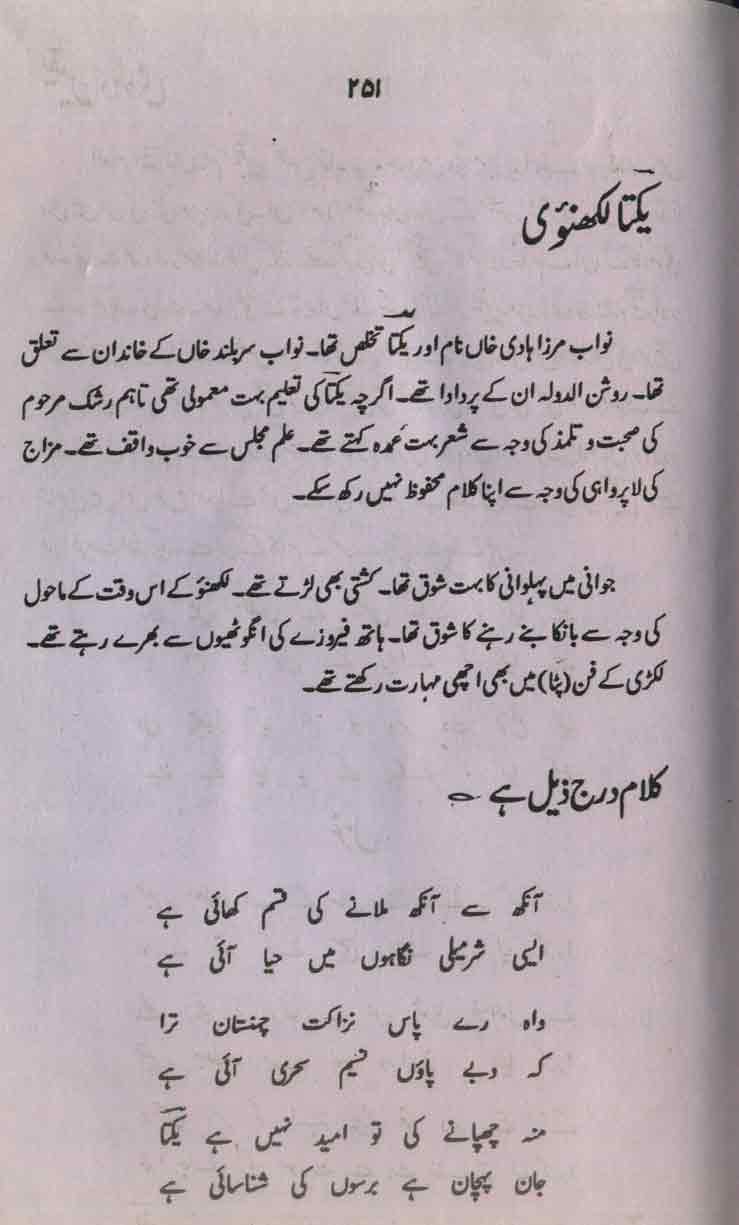 ۲۵۱
یکتا لکھنوٴی
نواب مرزا ہادی خاں نام اور یکتا تخلص تھا۔ نواب سربلند خاں کے خاندان سے تعلق
تھا۔ روشن الدولہ ان کے پردادا تھے۔ اگرچہ یکتا کی تعلیم بہت معمولی تھی تاہم رشک مرحوم
کی صحبت و تلمذ کی وجہ سے شعر بہت عمدہ کہتے تھے۔ علم مجلس سے خوب واقف تھے۔ مزاج
کی لاپرواہی کی وجہ سے اپنا کلام محفوظ نہیں رکھ سکے۔
جوانی میں پہلوانی کا بہت شوق تھا۔ کشتی بھی لڑتے تھے۔ لکھنؤ کے اس وقت کے ماحول
کی وجہ سے بانکا بنے رہنے کا شوق تھا۔ ہاتھ فیروزے کی انگوٹھیوں سے بھرے رہتے تھے۔
لکڑی کے فن (پٹا) میں بھی اچھی مہارت رکھتے تھے۔
کلام درج ذیل ہے
آنکھ سے آنکھ ملانے کی قسم کھائی ہے
ایسی شرمیلی نگاہوں میں حیا آئی ہے
واہ رے پاس نزاکت چمنستان ترا
کہ دبے پاؤں نسیم سحری آئی ہے
منہ چھپانے کی تو امید نہیں ہے یکتا
جان پہچان ہے برسوں کی شناسائی ہے